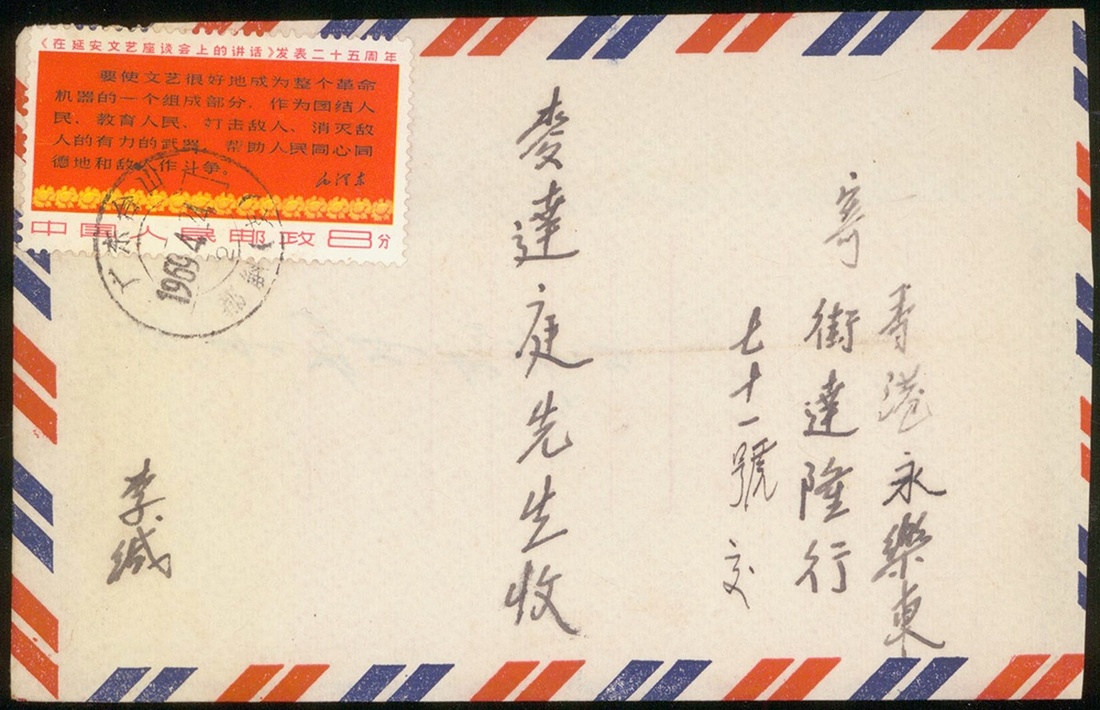 《在延安文艺座谈会上的讲话》发表二十五周年
要使文艺很好地成为整个革命
机器的一个组成部分，作为团结人
民、教育人民、打击敌人、消灭敌
人的有力的武器，帮助人民同心同
德地和敌人作斗争。
毛泽东
中国人民邮政8分
1969.4.4
寄
香港永樂東
街達隆行
七十一號 交
麥達庭先生收
李缄